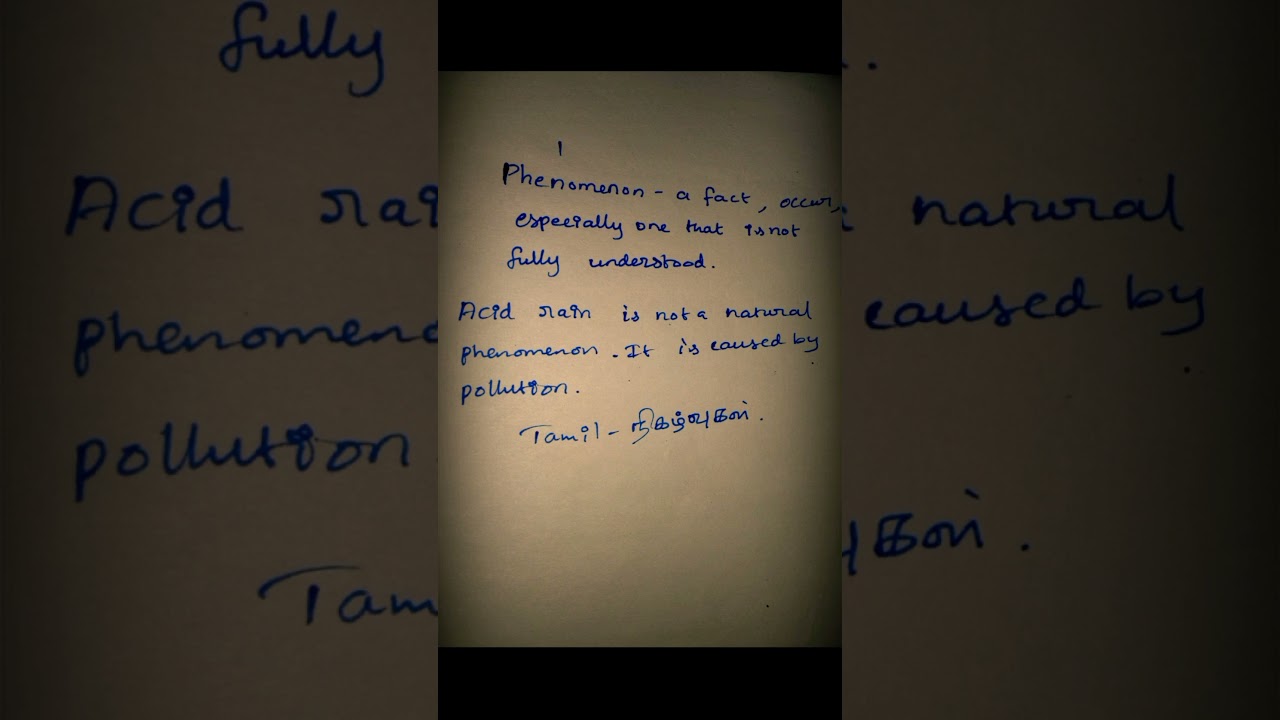 Phenomenon - a fact, occur,
especially one that is not
fully understood.
Acid rain is not a natural
phenomenon. It is caused by
pollution.
Tamil - நிகழ்வுகள்.